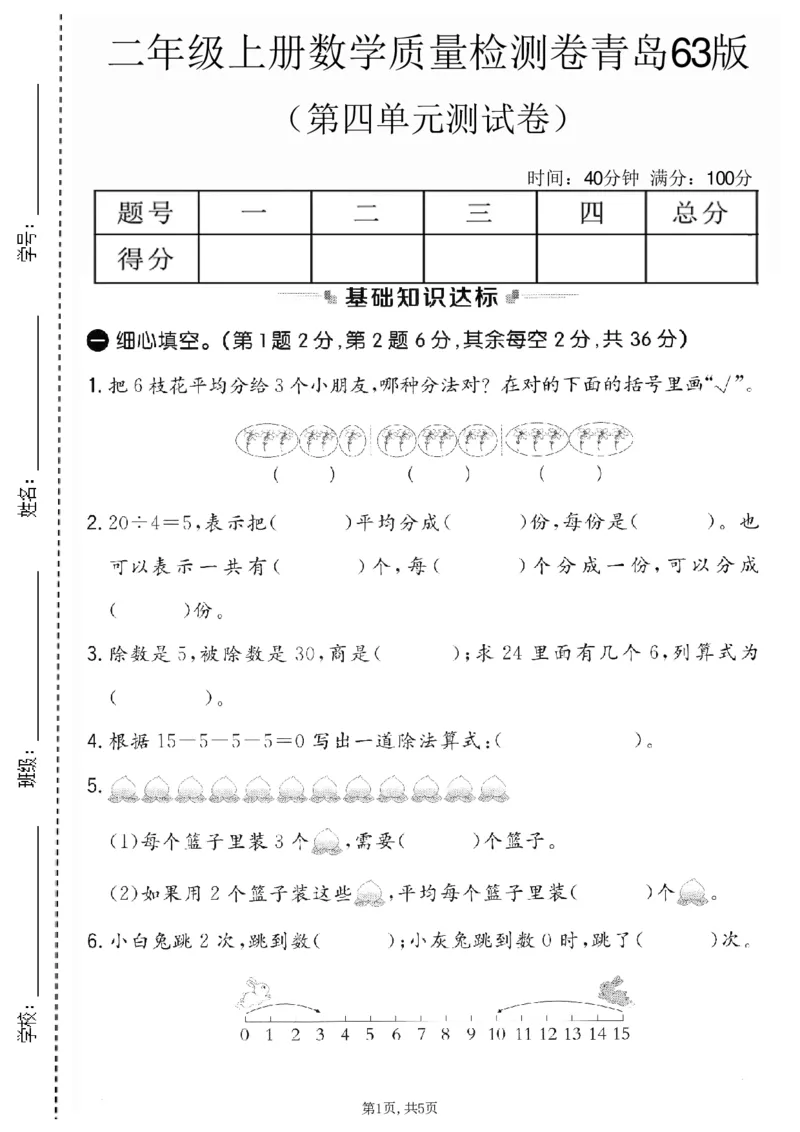 二年级上册数学质量检测卷青岛63版
（第四单元测试卷）
时间：40分钟 满分：100分
题号 一 二 三 四 总分
得分
基础知识达标
一 细心填空。(第1题2分,第2题6分,其余每空2分,共36分)
1. 把6枝花平均分给3个小朋友,哪种分法对? 在对的下面的括号里画“√”。
( ) ( ) ( )
2. 20÷4=5,表示把( )平均分成( )份,每份是( )。也
可以表示一共有( )个,每( )个分成一份,可以分成
( )份。
3. 除数是5,被除数是30,商是( );求24里面有几个6,列算式为
( )。
4. 根据15-5-5-5=0写出一道除法算式:( )。
5.
(1)每个篮子里装3个 ,需要( )个篮子。
(2)如果用2个篮子装这些 ,平均每个篮子里装( )个 。
6. 小白兔跳2次,跳到数( );小灰兔跳到数0时,跳了( )次。
0 1 2 3 4 5 6 7 8 9 10 11 12 13 14 15
学号：
姓名：
班级：
学校：
第1页,共5页